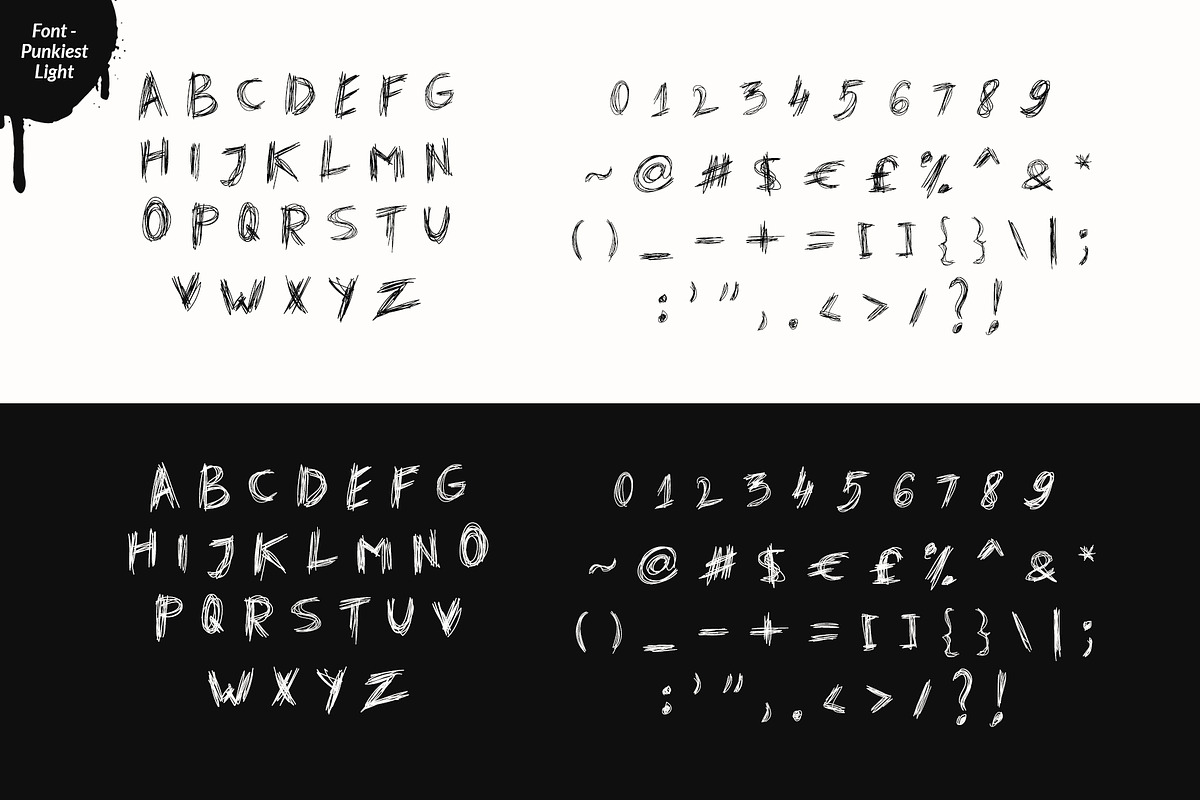 Font -
Punkiest
Light
A B C D E F G
H I J K L M N
O P Q R S T U
V W X Y Z
0 1 2 3 4 5 6 7 8 9
~ @ # $ € £ % ^ & *
( ) _ - + = [ ] { } \ | ;
: ' " , . < > / ? !
A B C D E F G
H I J K L M N O
P Q R S T U V
W X Y Z
0 1 2 3 4 5 6 7 8 9
~ @ # $ € £ % ^ & *
( ) _ - + = [ ] { } \ | ;
: ' " , . < > / ? !